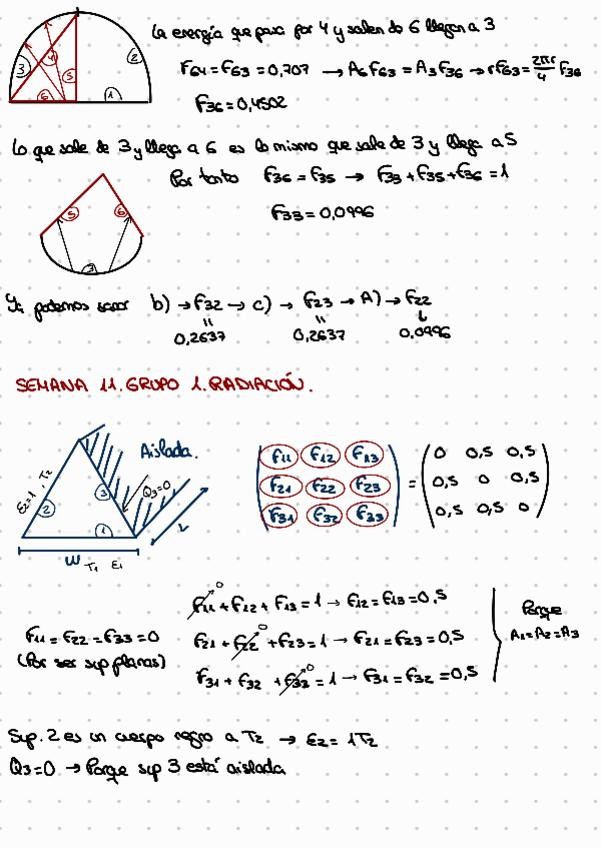 La energía que pasa por 4 y saliendo 6 llegan a 3
F64 = F63 = 0,707 → A6F63 = A3F36 → rF63 = 2πr/4 F36
F36 = 0,4502
3 4 5 2 6 1
Lo que sale de 3 y llega a 6 es lo mismo que sale de 3 y llega a 5
Por tanto F36 = F35 → F33 + F35 + F36 = 1
F33 = 0,0996
5 6
3
Ya podemos sacar b) → F32 → c) → F23 → A) → F22
0,2637 0,2637 0,0996
SEMANA 11. GRUPO 1. RADIACIÓN.
Aislada.
E2=1, T2
Q3=0
2 3 1
L
W T1 E1
F11 F12 F13
F21 F22 F23
F31 F32 F33
=
0 0,5 0,5
0,5 0 0,5
0,5 0,5 0
F11 = F22 = F33 = 0
(Por ser sup planas)
F11⁰ + F12 + F13 = 1 → F12 = F13 = 0,5
F21 + F22⁰ + F23 = 1 → F21 = F23 = 0,5
F31 + F32 + F33⁰ = 1 → F31 = F32 = 0,5
Porque
A1=A2=A3
Sup. 2 es un cuerpo negro a T2 → E2 = 1T2
Q3=0 → Porque sup 3 está aislada